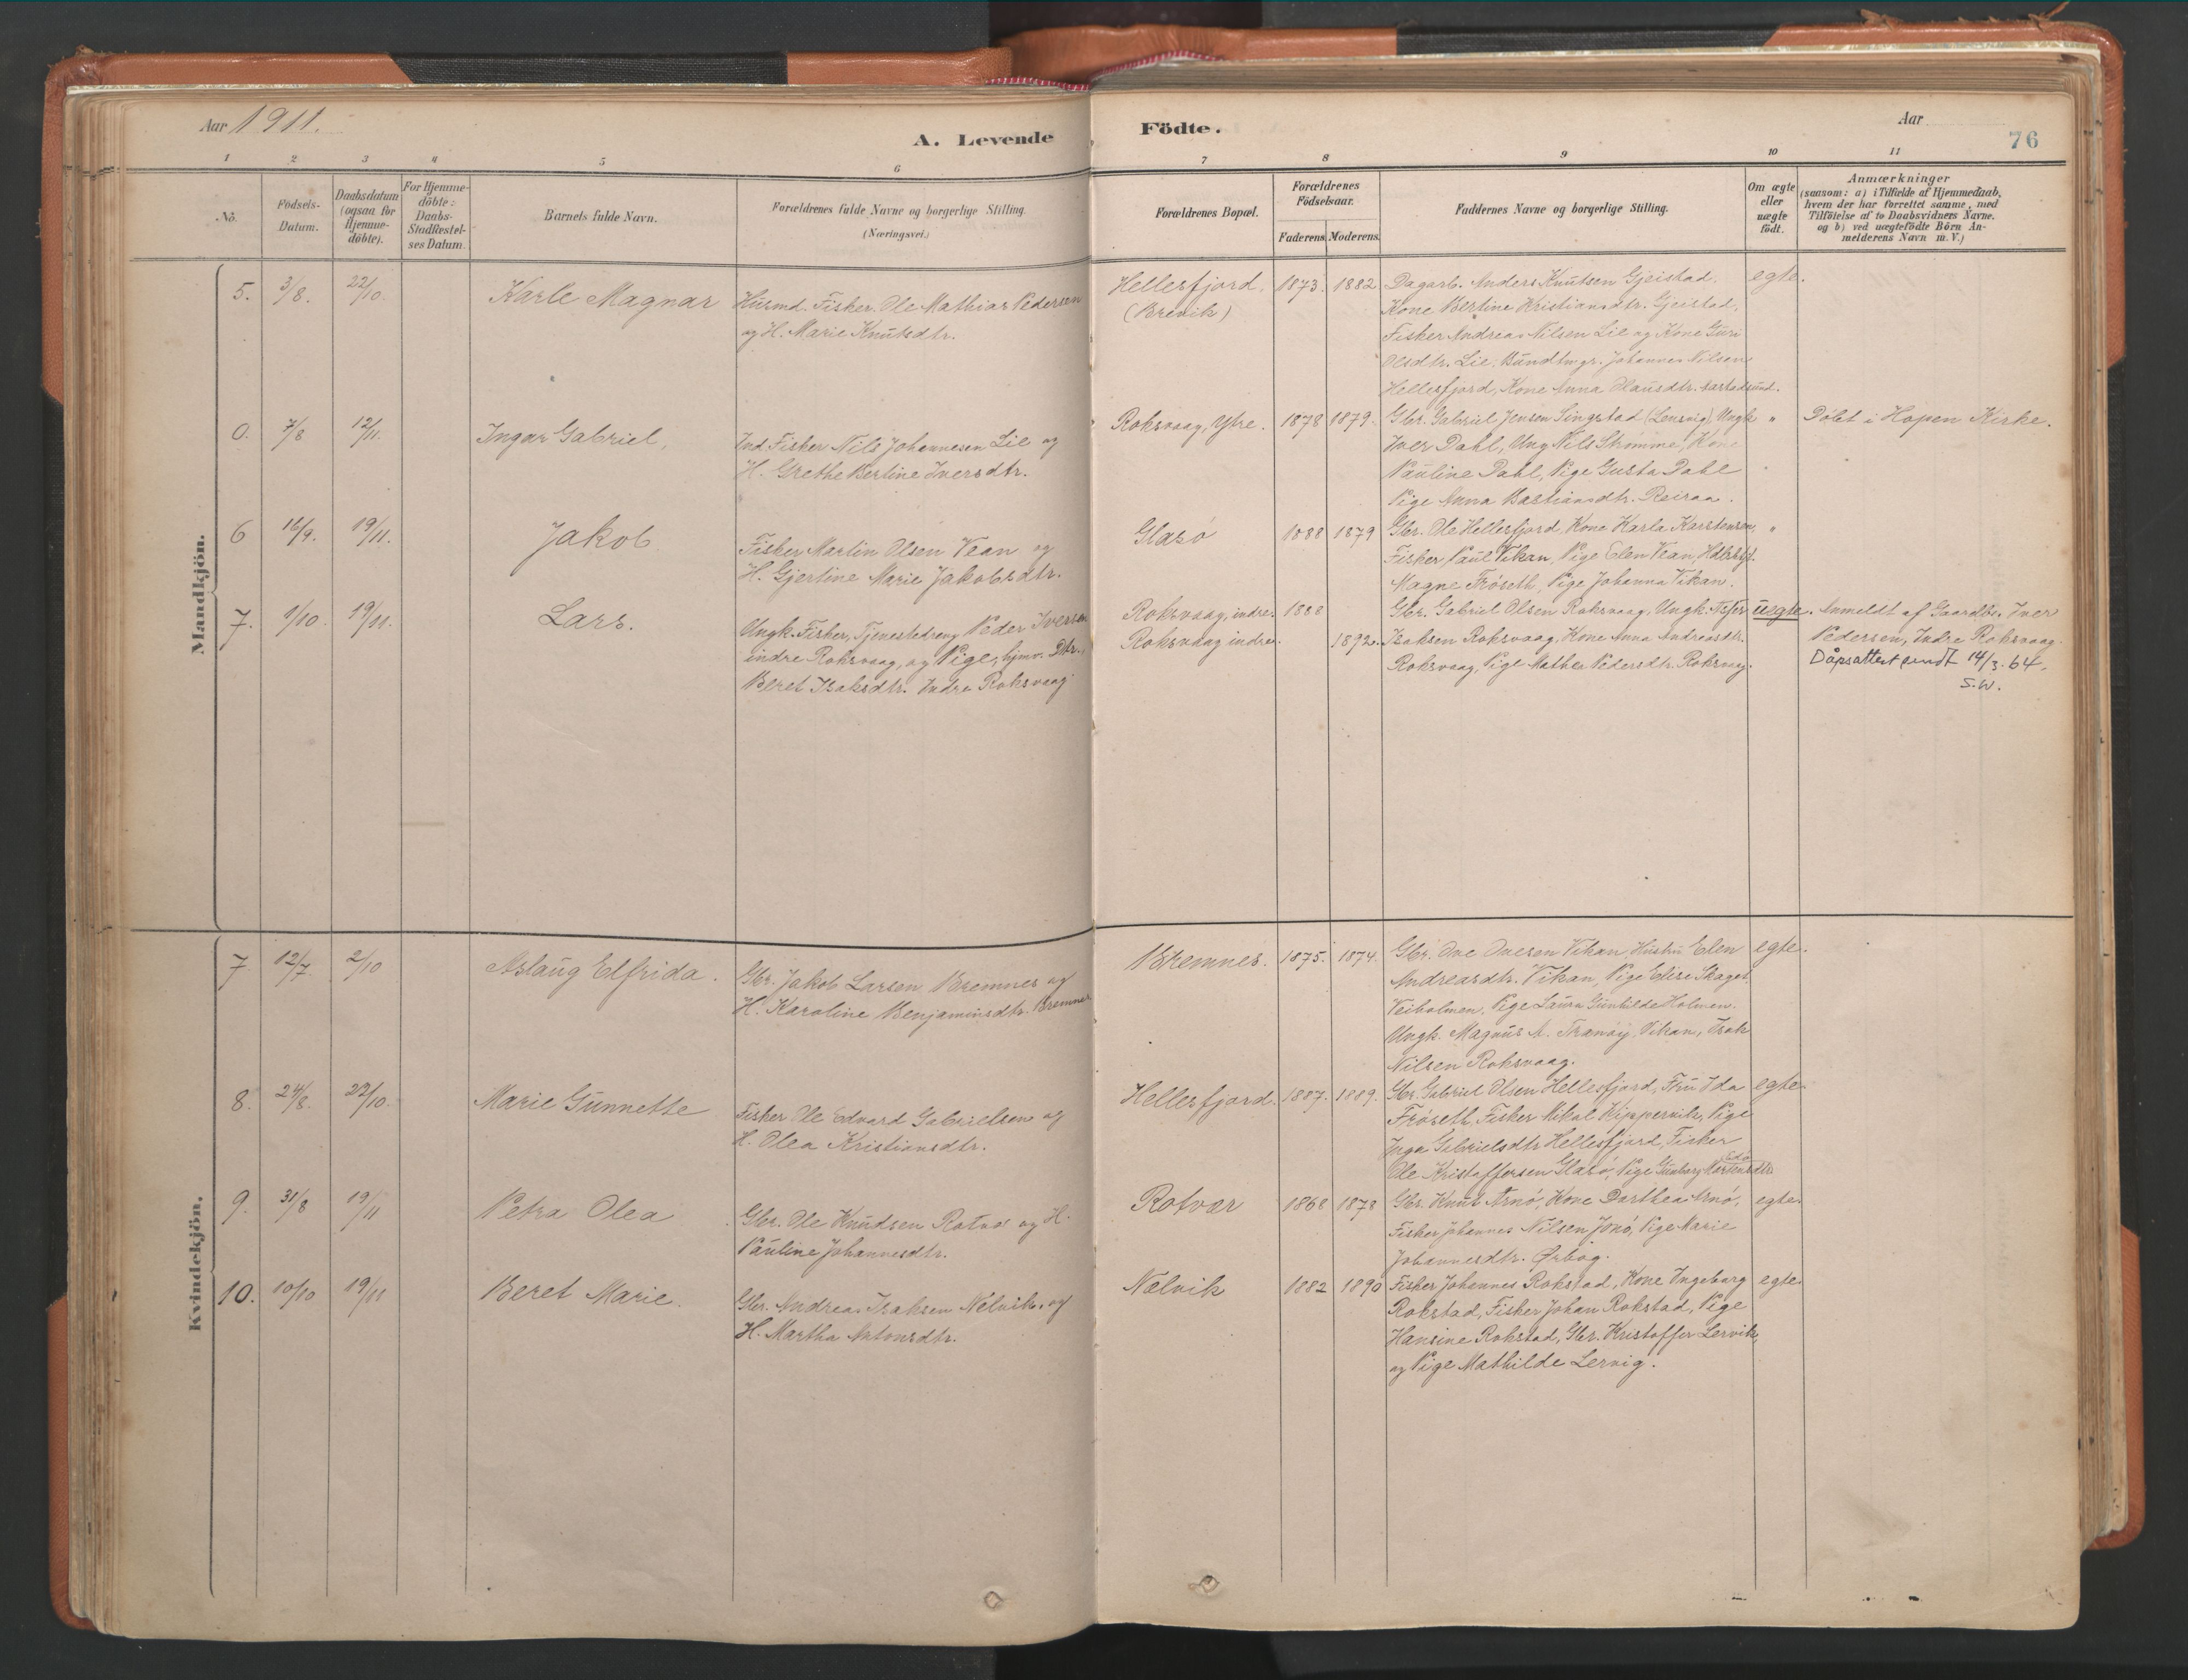 Aar 1911.
A. Levende
Födte.
Aar
76
1 2 3 4 5 6 7 8 9 10 11
No.
Födsels-
Datum.
Daabsdatum
(ogsaa for
Hjemme-
döbte).
For Hjemme-
döbte:
Daabs-
Stadfæstel-
ses Datum.
Barnets fulde Navn.
Forældrenes fulde Navne og borgerlige Stilling.
(Næringsvei.)
Forældrenes Bopæl.
Forældrenes
Födselsaar.
Faderens. Moderens.
Faddernes Navne og borgerlige Stilling.
Om ægte
eller
uægte
födt.
Anmærkninger
(saasom: a) i Tilfælde af Hjemmedaab,
hvem der har forrettet samme, med
Tilföielse af to Daabsvidners Navne.
og b) ved uægtefödte Börn An-
melderens Navn m. V.)
Mandkjön.
5. 3/8. 22/10. Karle Magnar
Husmd. Fisker Ole Mathias Pedersen
og H. Marie Knutsdtr.
Hellesfjord.
(Brevik)
1873. 1882
Dagarb. Anders Knutsen Gjeistad,
Kone Bertine Kristiansdtr. Gjeistad,
Fisker Andreas Nilsen Lie og Kone Guri
Olsdtr. Lie, Bundtmgr. Johannes Nilsen
Hellesfjord, Kone Anna Olausdtr.
egte.
0. 7/8 12/11. Ingar Gabriel,
Ind. Fisker Nils Johannesen Lie og
H. Grethe Bertine Iversdtr.
Roksvaag, Ytre.
1878 1879.
Gbr. Gabriel Jensen Singstad (Lensvig), Ungk
Iver Dahl, Ung Nils Strømme, Kone
Pauline Dahl, Pige Gusta Dahl
Pige Anna Bastiansdtr. Reiraa.
"
Döbt i Hopen Kirke.
6 16/9. 19/11. Jakob
Fisker Martin Olsen Vean og
H. Gjertine Marie Jakobsdtr.
Glasø
1888 1879
Gbr. Ole Hellesfjord, Kone Karla Karstensen,
Fisker Paul Vikan, Pige Elen Vean
Magne Frøseth, Pige Johanna Vikan.
"
7. 1/10. 19/11. Lars.
Ungk. Fisker, Tjenestedreng Peder Iversen
indre Roksvaag, og Pige, hjmv. Dtr.,
Beret Isaksdtr. Indre Roksvaag
Roksvaag, indre.
Roksvaag indre.
1888
1892.
Gbr. Gabriel Olsen Roksvaag, Ungk.
Isaksen Roksvaag, Kone Anna Andreasdtr.
Roksvaag, Pige Mathea Pedersdtr. Roksvaag.
uegte.
Anmeldt af Gaardbr. Iver
Pedersen, Indre Roksvaag.
Dåpsattest sendt 14/3.64,
S.W.
Kvindekjön.
7 12/7. 2/10 Aslaug Elfrida.
Gbr. Jakob Larsen Bremnes og
H. Karoline Benjaminsdtr. Bremnes
Bremnes.
1875. 1874.
Gbr. Ove Ovesen Vikan, Hustru Elen
Andreasdtr. Vikan, Pige Elise Skaget,
Veiholmen, Pige Laura Gunhilde Holmen.
Ungk. Magnus A. Tranøy, Vikan, Isak
Nilsen Roksvaag.
egte.
8. 24/8. 22/10. Marie Gunnette
Fisker Ole Edvard Gabrielsen og
H. Olea Kristiansdtr.
Hellesfjord.
1887. 1889.
Gbr. Gabriel Olsen Hellesfjord, Fru Ida
Frøseth, Fisker Mikal Kippervik, Pige
Inga Gabrielsdtr. Hellesfjord, Fisker
Ole Kristoffersen Glasø, Pige Gunborg Martensdtr.
egte.
9. 31/8 19/11 Petra Olea
Gbr. Ole Knudsen Rotvær og H.
Pauline Johannesdtr.
Rotvær
1868 1878
Gbr. Knut Arnø, Kone Dorthea Arnø,
Fisker Johannes Nilsen Jonø, Pige Marie
Johannesdtr. Ørbog.
egte.
10. 10/10 19/11 Beret Marie.
Gbr. Andreas Isaksen Nelvik, og
H. Martha Antonsdtr.
Nelvik
1882 1890
Fisker Johannes Rokstad, Kone Ingeborg
Rokstad, Fisker Johan Rokstad, Pige
Hansine Rokstad, Gbr. Kristoffer Lervik,
og Pige Mathilde Lervig.
egte.